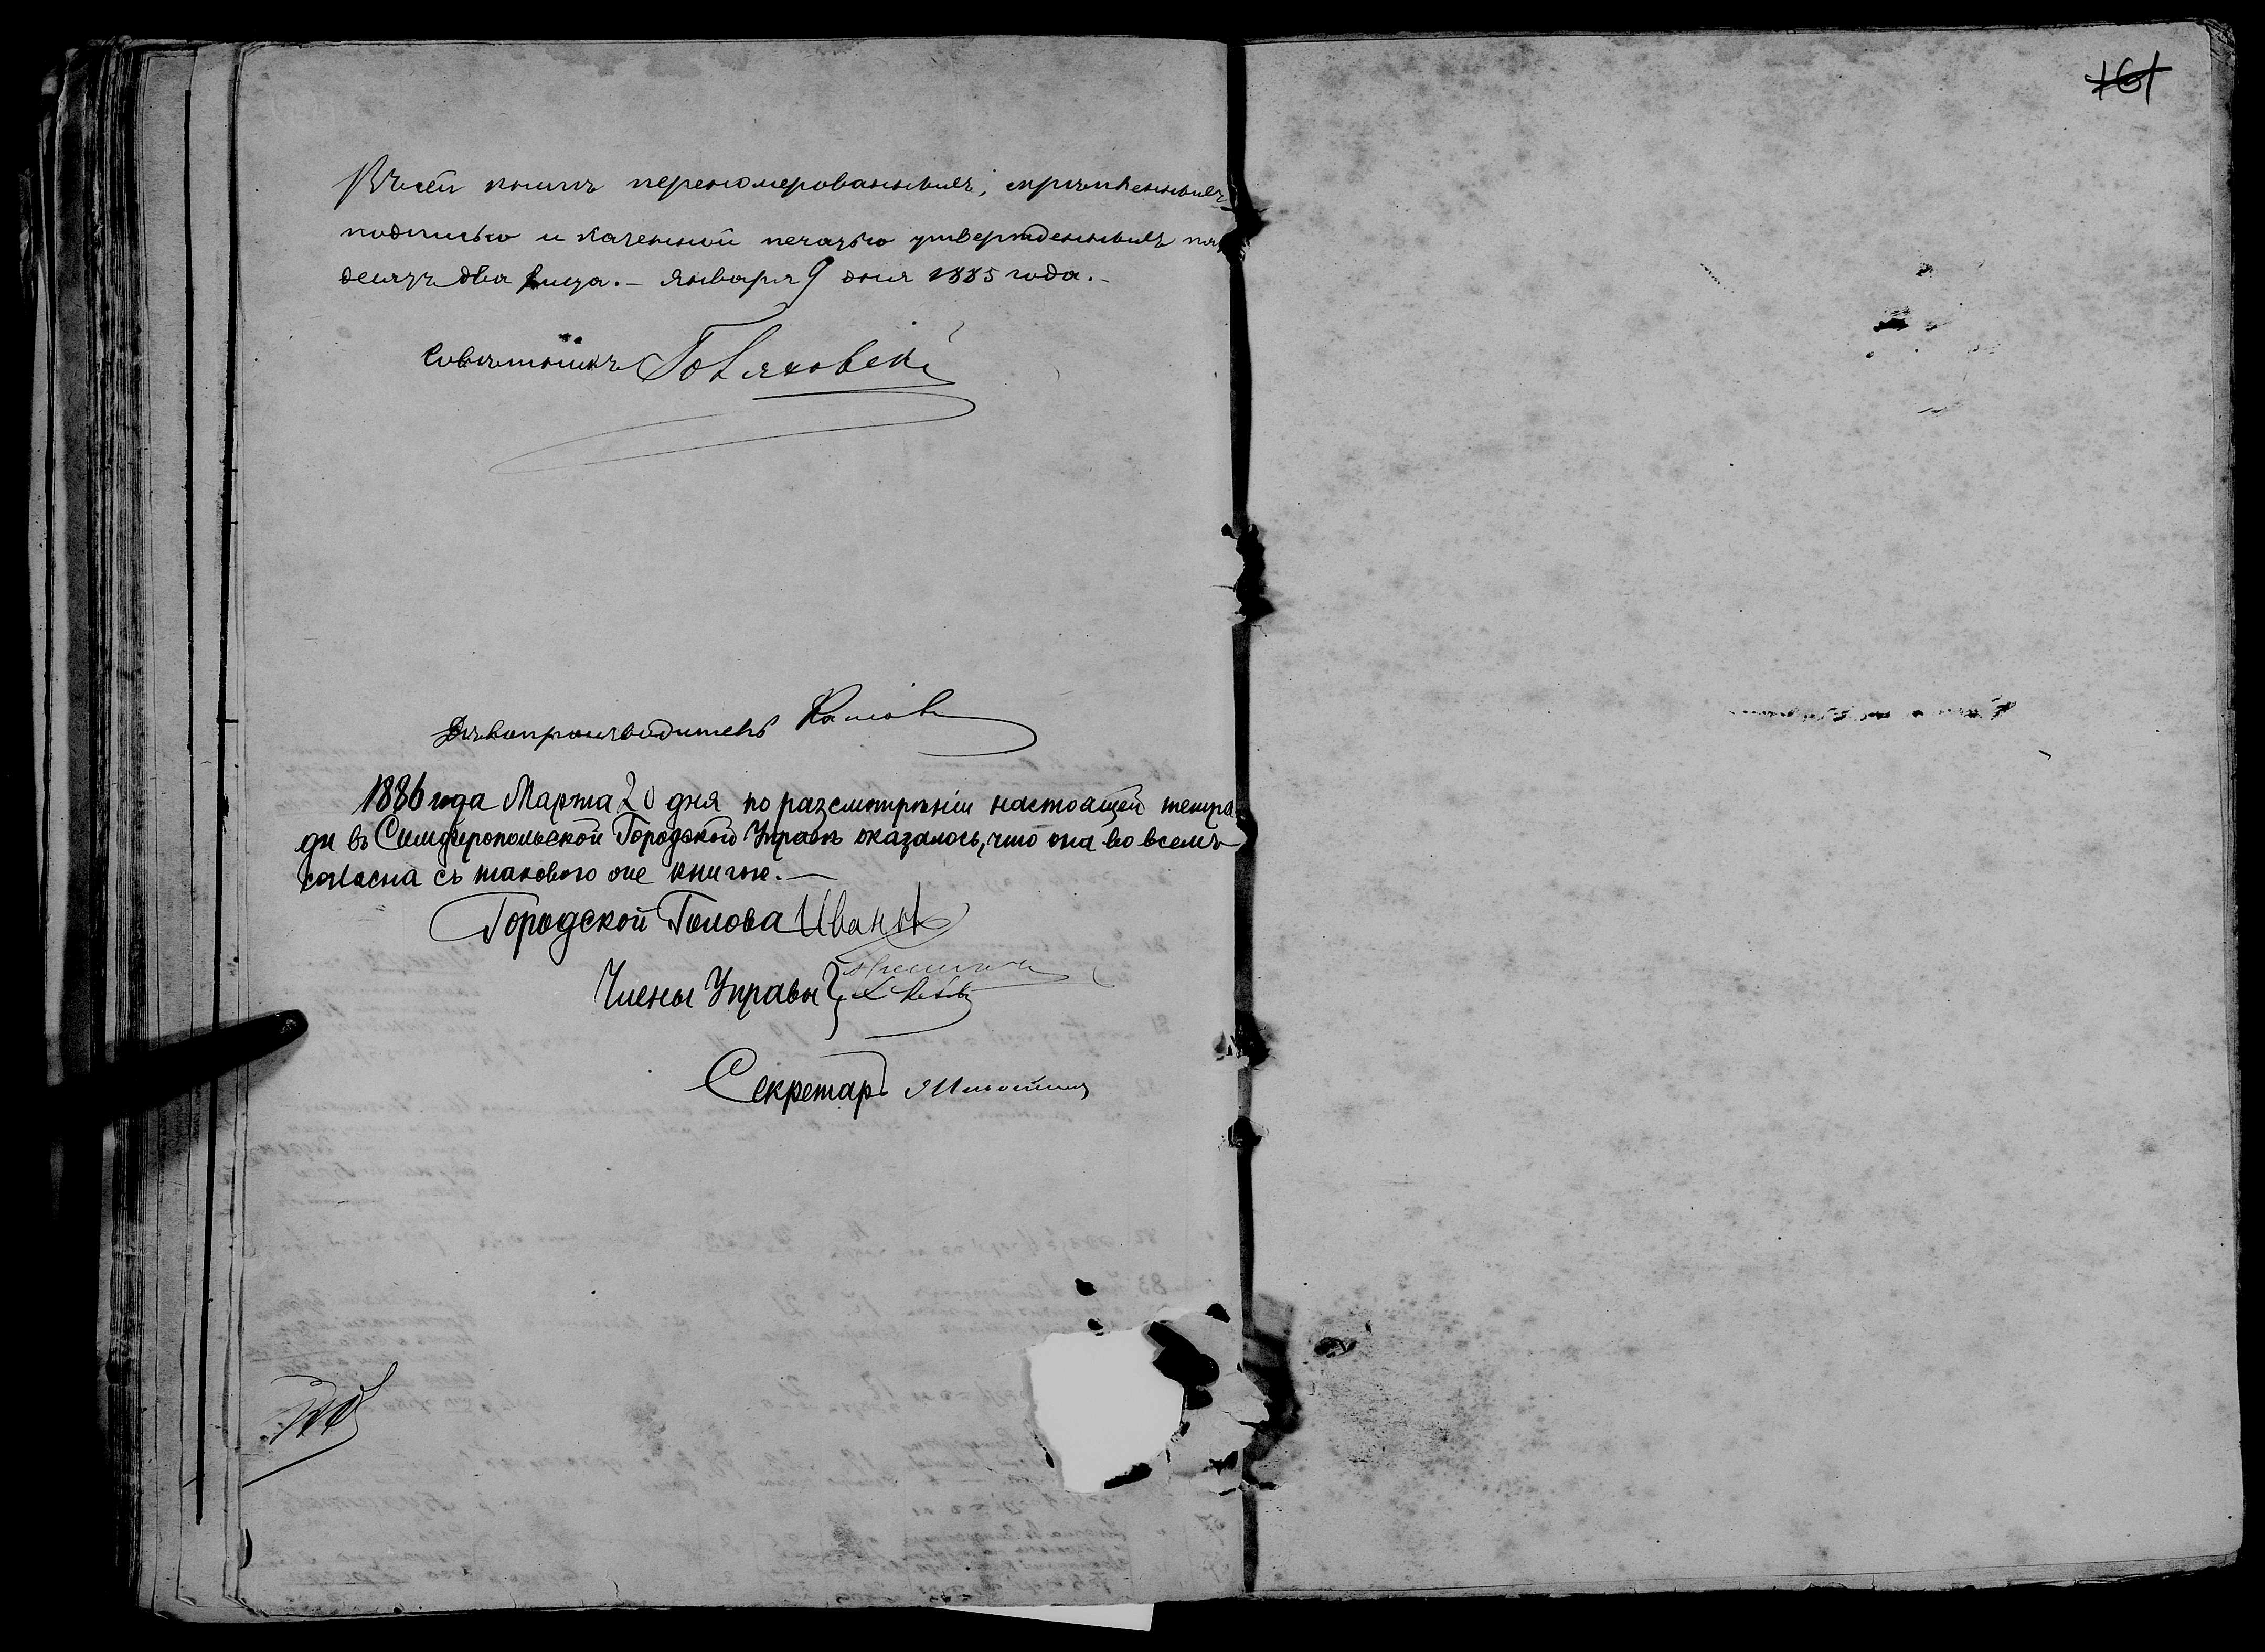 161
Въ сей книгѣ перенумерованныхъ, скрѣпленныхъ
подписью и казенной печатью утвержденныхъ пять
десятъ два листа. – Января 9 дня 1885 года. –
Совѣтникъ
Дѣлопроизводитель
1886 года Марта 20 дня по разсмотрѣніи настоящей тетра
ди въ Симферопольской Городской Управѣ оказалось, что она во всемъ
согласна съ таковою же книгою. –
Городской Голова Ивановъ
Члены Управы
Секретарь